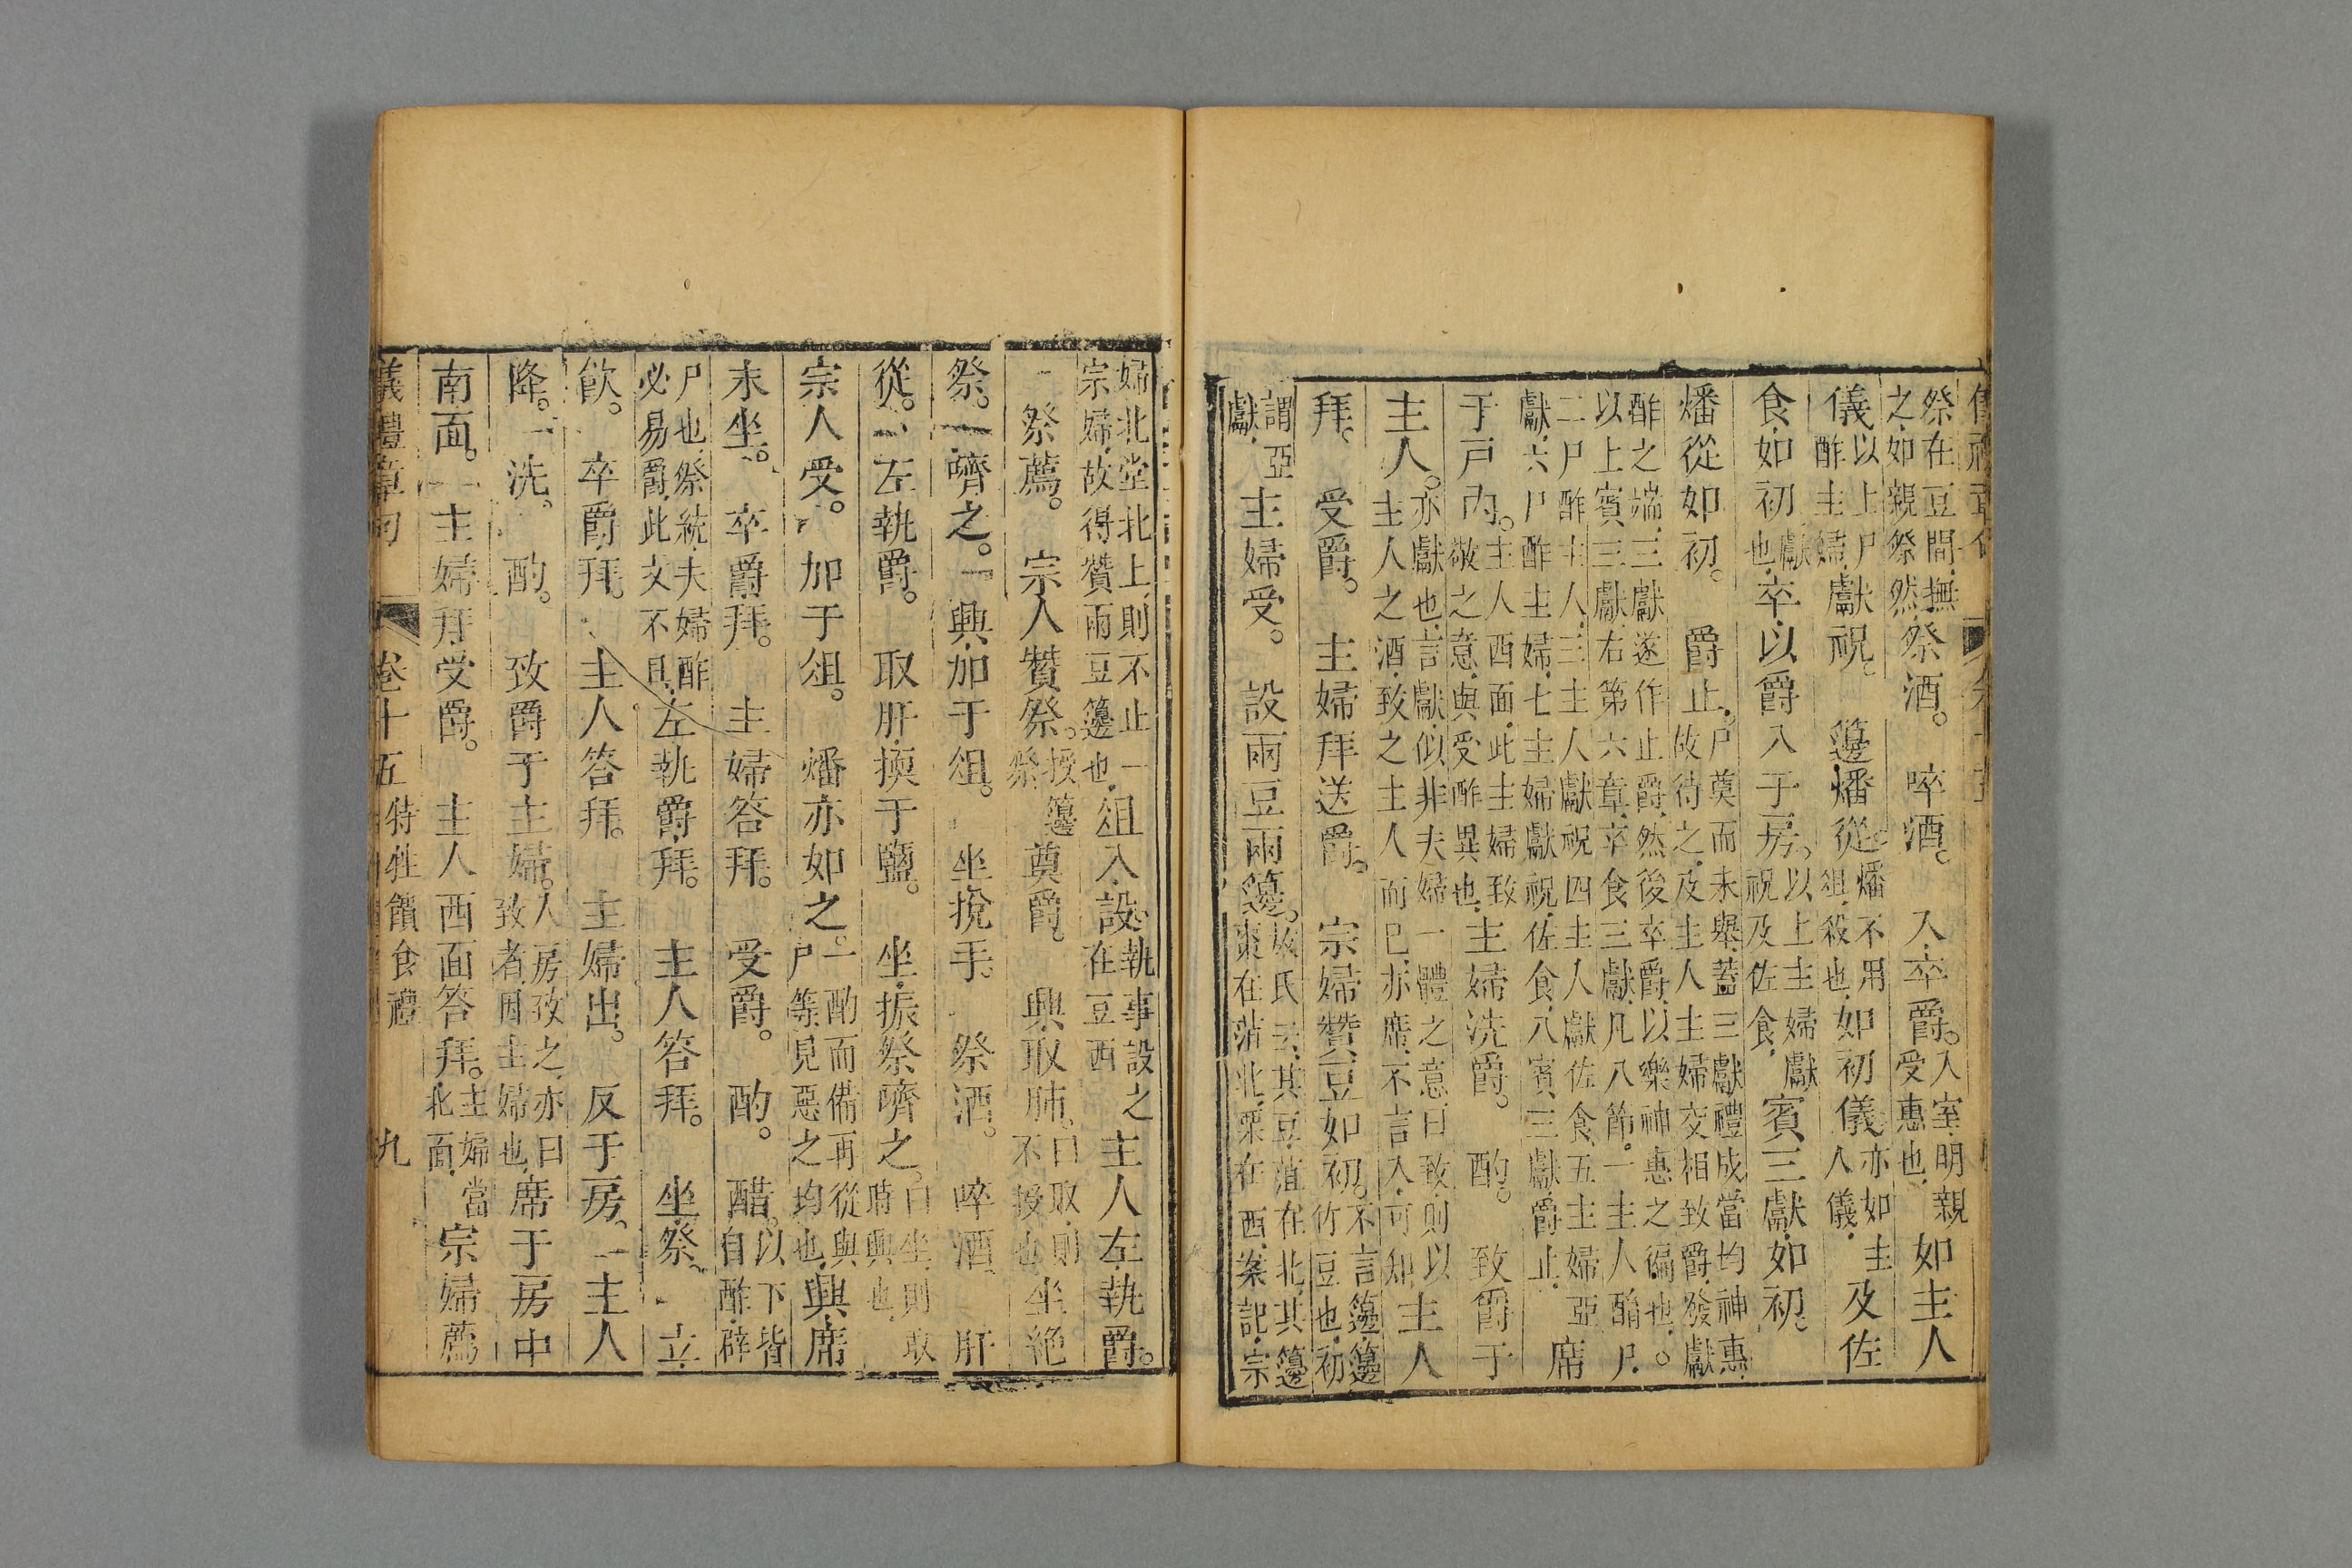 祭在豆間撫
之如親祭然祭酒。啐酒。入卒爵。入室明親
受惠也如主人
儀以上尸
酢主婦獻祝。籩燔從燔不用
俎殺也如初儀亦如主
人儀及佐
食如初獻
也卒以爵入于房。以上主婦獻
祝及佐食賓三獻如初。
燔從如初。爵止。尸奠而未舉蓋三獻禮成當均神惠
故待之及主人主婦交相致爵發獻
酢之端三獻遂作止爵然後卒爵以樂神惠之徧也。
以上賓三獻右第六章卒食三獻凡八節。一主人酳尸
二尸酢主人三主人獻祝四主人獻佐食五主婦亞
獻六尸酢主婦七主婦獻祝佐食八賓三獻爵止席
于戶內。主人西面此主婦致
敬之意與受酢異也主婦洗爵。酌。致爵于
主人。亦獻也言獻似非夫婦一體之意曰致則以
主人之酒致之主人而已亦席不言入可知主人
拜。受爵。主婦拜送爵。宗婦贊豆如初。不言籩籩
竹豆也初
謂亞
獻主婦受。設兩豆兩籩。敖氏云其豆菹在北其籩
棗在菹北栗在西案記宗
婦北堂北上則不止一
宗婦故得贊兩豆籩也俎入設執事設之
在豆西主人左執爵。
祭薦。宗人贊祭。授籩
祭奠爵。興取肺。曰取則
不授也坐絕
祭。嚌之。興加于俎。坐挩手。祭酒。啐酒肝
從。左執爵。取肝擩于鹽。坐振祭嚌之。曰坐則取
時興也
宗人受。加于俎。燔亦如之。一酌而備再從與
尸等見惡之均也興席
末坐。卒爵拜。主婦答拜。受爵。酌。醋。以下皆
自酢辟
尸也祭統夫婦酢
必易爵此文不具左執爵拜。主人答拜。坐祭。立
飲。卒爵拜。主人答拜。主婦出。反于房。主人
降。洗。酌。致爵于主婦。人房致之亦曰
致者因主婦也席于房中
南面。主婦拜受爵。主人西面答拜。主婦當
北面宗婦薦
儀禮章句 卷十五 特牲饋食禮 九